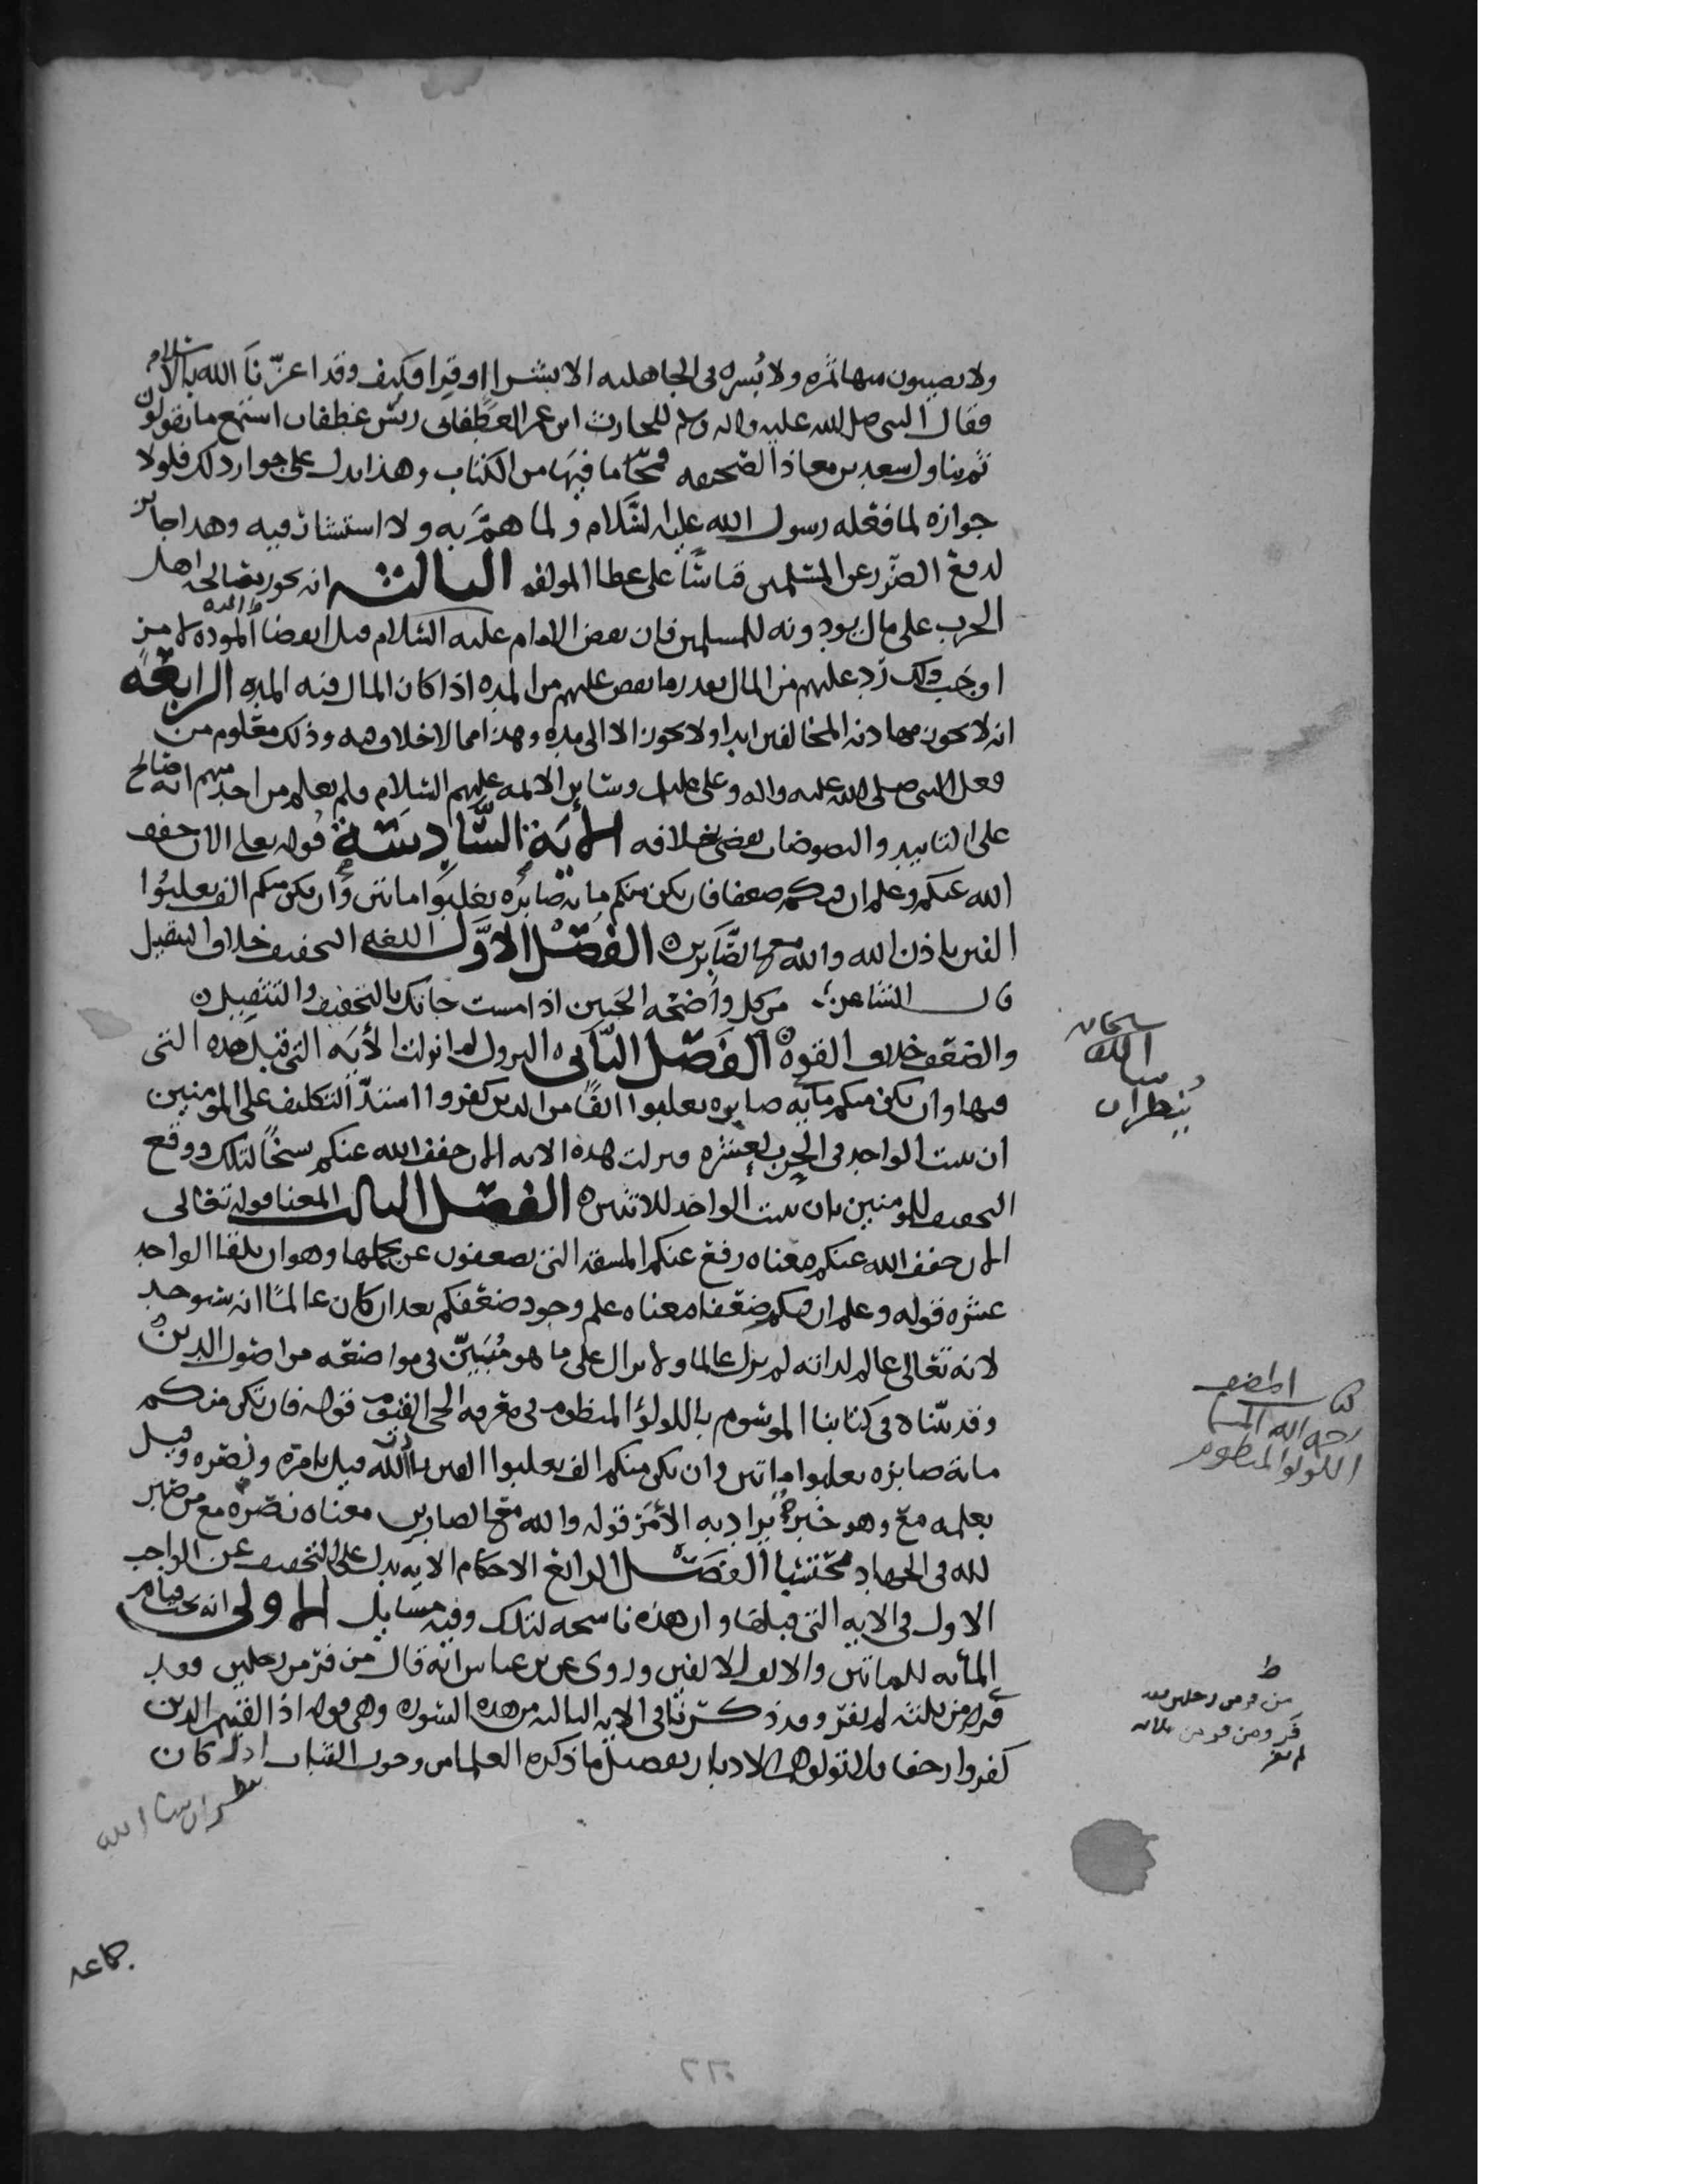 ولا يصيبون منها تمره ولا بُسره في الجاهليه الا بشرا او قِرا فكيف وقد اعزّنا الله بالاسلام
فقال النبي صلى الله عليه واله وسلم للحارث ابن عمر الغطفاني ريس غطفان استمع ما يقولون
ثم يناول سعد بن معاذ الصحيفه فمحّا ما فيها من الكتاب وهذا يدل على جواز ذلك فلولا
جوازه لما فعله رسول الله عليه السَّلام ولما همَّ به ولا استشار فيه وهذا جايز
لدفع الضّرر عن المسلمين قياسًا على عطا المولفه الثالثه انه يجوز مصالحة اهل
الحرب على مال يودونه للمسلمين فان نقض الامام عليه السّلام قبل انقضا المده لامرٍ
اوجَب ذلك رَد عليهم من المال بقدر ما نقص عليهم من المده اذا كان المال فيه المده الرابعه
انه لا يجوز مهادنه المخالفين ابدا ولا يجوز الا الى مده وهذا مما لا خلاف فيه وذلك معلوم من
فعل النبي صلى الله عليه واله وعلي عليلم وساير الايمه عليهم السّلام ولم يعلم من احد منهم انه صالح
على التابيد والنصوص تقضي بخلافه الايَة السَّادِسَة قوله تعالى الان خفف
الله عنكم وعلم ان فيكم ضعفا فان يكن منكم مايه صَابرَه يغلبُوا ماتين وَان يكن منكم الف يغلبُوا
الفين باذن الله والله مع الصَّابرين الفصْل الاوَّل اللغه التخفيف خلاف التثقيل
قال الشاعر من كل واضحه الجَبين اذا مست جاتك بالتخفيف والتثقيل
والضعف خلاف القوه الفَصْل الثَّاني النزول لما نزلت الأيَه التي قبل هَذه التي
فيها وان يكن منكم مأيه صابره يغلبوا الفًا من الذين كفروا اشتدّ التكليف على المومنين
ان يثبت الواحد في الحرب لعشره فنزلت هذه الايه الان خفف الله عنكم نسخًا لتلك ووقع
التخفيف للمومنين بان يثبت الواحد للاثنين الفصْل الثالث المعنا قوله تعَالى
الان خفف الله عنكم معناه رفع عنكم المشقه التي تضعفون عن حملها وهو ان يلقا الواحد
عشره قوله وعلم ان فيكم ضعفا معناه علم وجود ضعفكم بعد ان كان عالمًا انه سيوجد
لانه تعَالى عالم لذاته لم يزل عالما ولا يزال على ما هو مُبيّن في مواضعه من اصول الدين
وقد بيّناه في كتابنا الموسوم باللولؤ المنظوم في معرفه الحي القيوم قوله فان تكن منكم
مائة صابره يغلبوا ماتين وان يكن منكم الف يغلبوا الفين باذن الله قيل بامره ونصره وقيل
بعلمه مع وهو خبرٌ يُراد به الأمر قوله والله مع الصابرين معناه نصره مع من صبر
لله في الجهاد محتسبا الفصْل الرابع الاحكام الايه تدل على التخفيف عن الواجب
الاول في الايه التي قبلها وان هذه ناسخه لتلك وفيه مسايل الاولى انه يجب قيام
المأيه للماتين والالف للالفين وروى عن بن عباس انه قال من فرّ من رجلين فقد
فر ومن فر من ثلثه لم يفرّ وقد ذكرنا في الايه الثالثه من هذه السّوره وهي قوله اذا لقيتم الذين
كفروا زحفا فلا تولوهم الادبار تفصيل ما ذكره العلما من وجوب الثبات اذا كان
سبحان
الله
ينظر ان
كتاب المصنف
رحمه الله المسما
اللولوا المنظوم
ط
من فر من رجلين فقد
فر ومن فر من ثلاثه
لم يفر
ينظر ان شا الله
جماعه